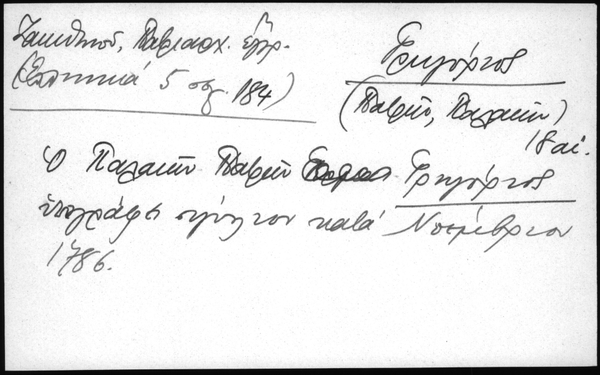 Ζακυθηνοῦ, Πατριαρχ. ἔγγρ.
(Ἑλληνικά 5 σελ. 184)
Γρηγόριος
(Παλαιῶν Πατρῶν)
18 αἰ.
Ὁ Παλαιῶν Πατρῶν Γρηγόριος
ὑπογράφει σιγίλλιον κατά Νοέμβριον
1786.